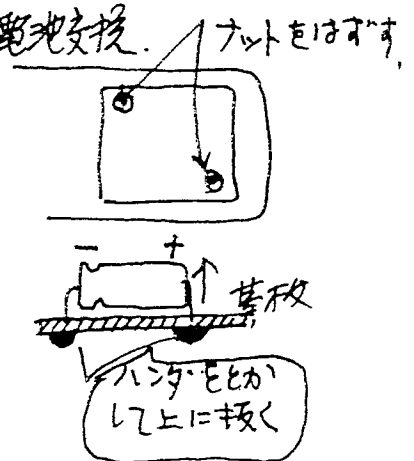 電池交換.
ナットをはずす.
- +
基板
ハンダをとか
して上に抜く